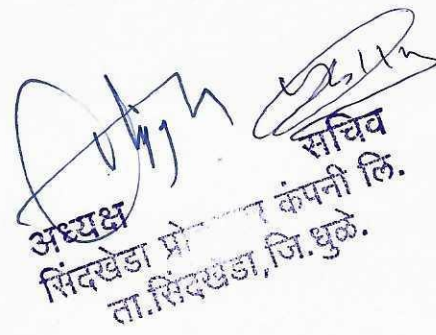 सचिव
अध्यक्ष
सिंदखेडा प्रो कंपनी लि.
ता.सिंदखेडा,जि.धुळे.